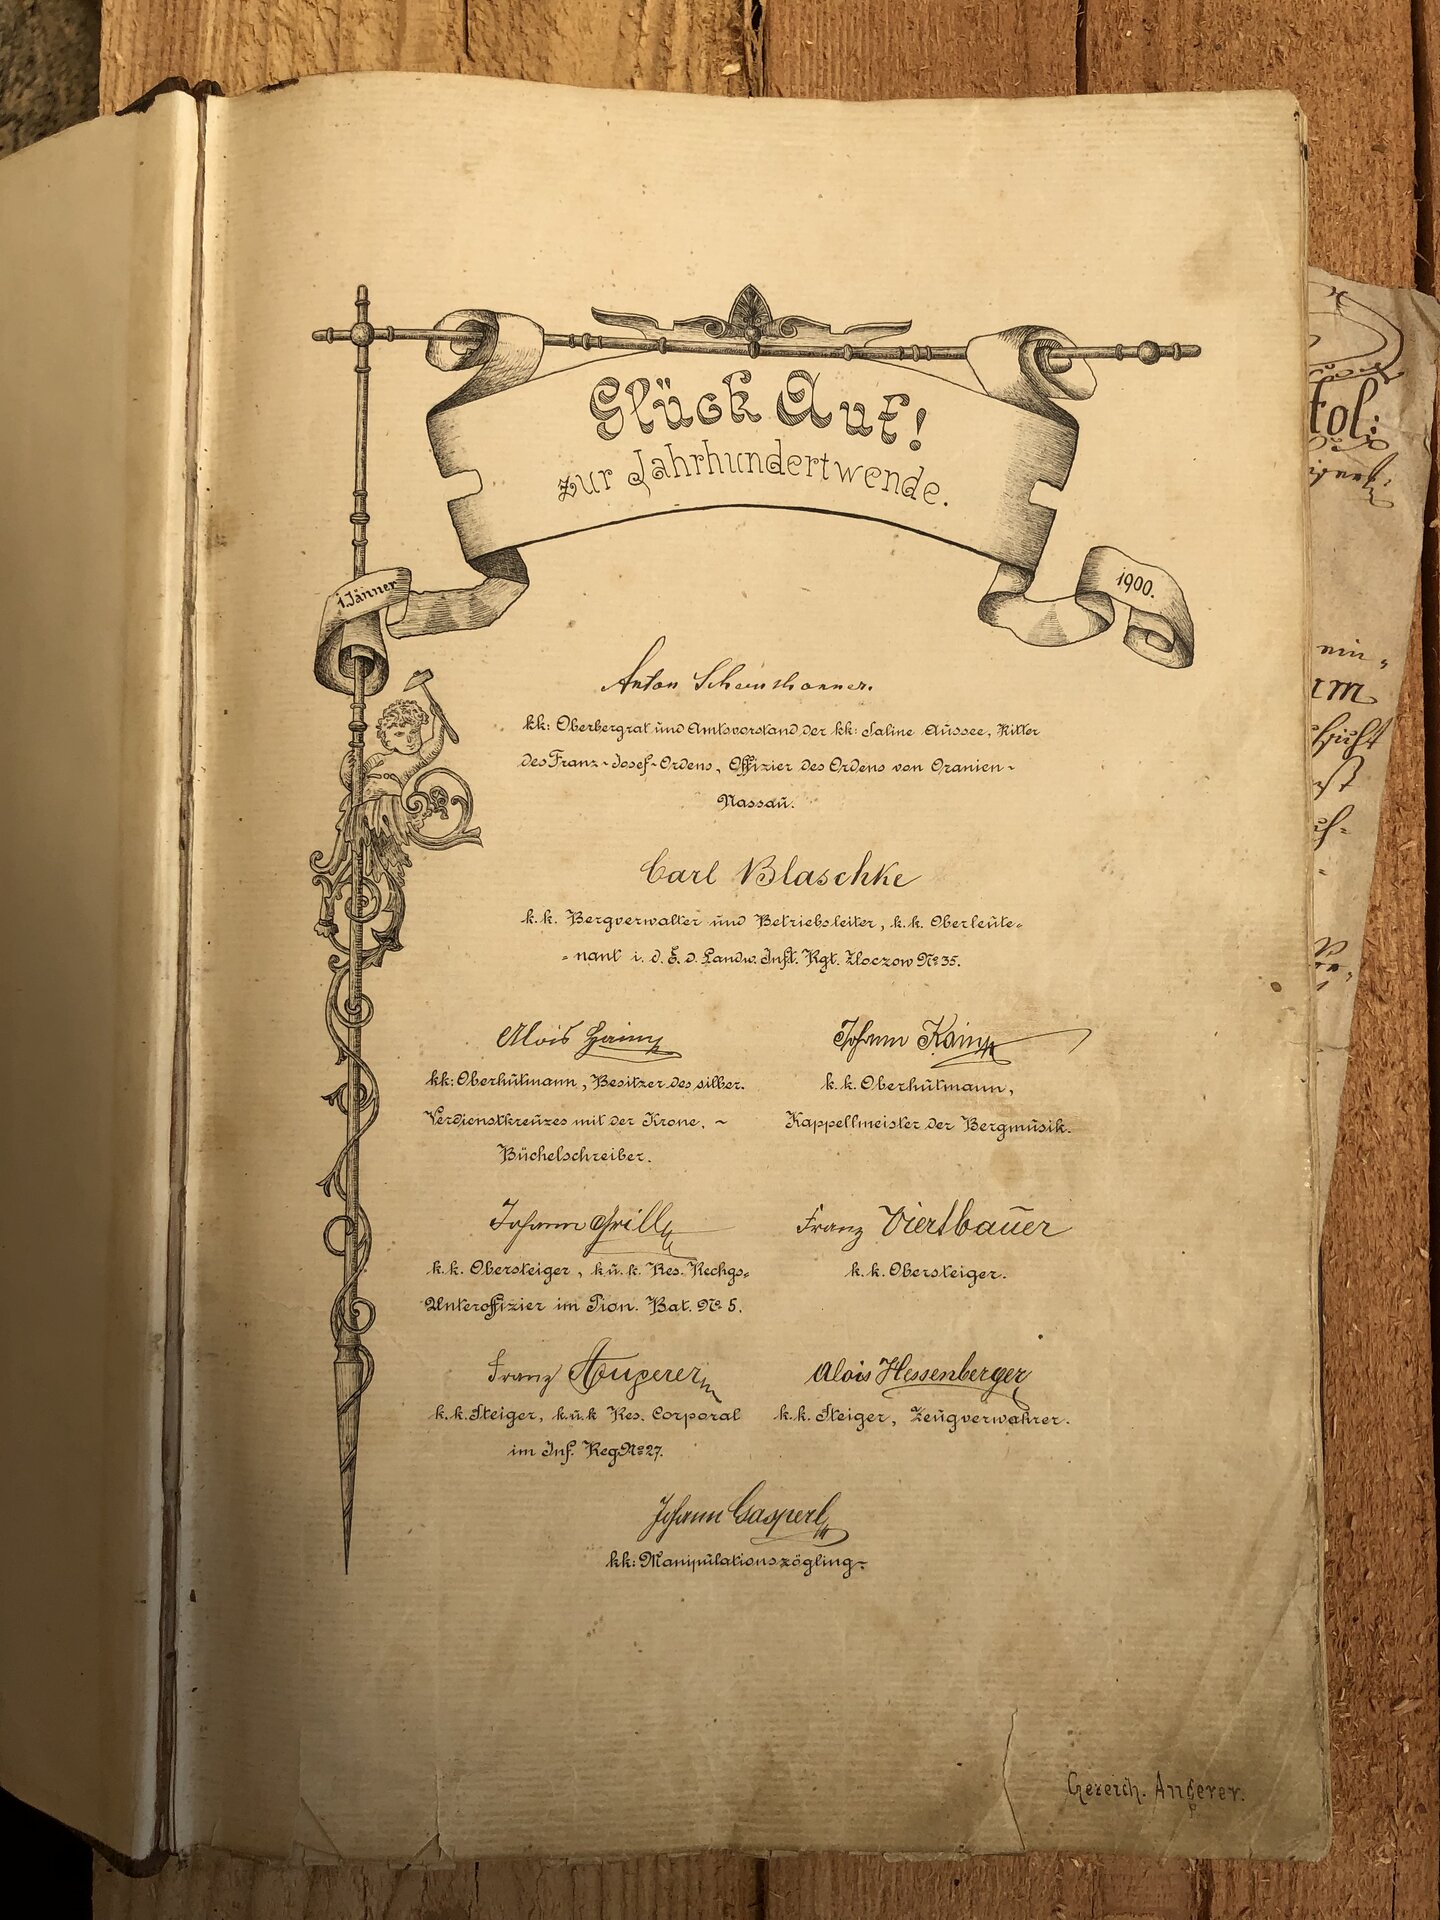 Glück Auf!
zur Jahrhundertwende.
1. Jänner
1900.
Anton
kk: Oberbergrat und Amtsvorstand der kk: Saline Aussee, Ritter
des Franz-Josef-Ordens, Offizier des Ordens von Oranien-
Nassau.
Carl Blaschke
k.k. Bergverwalter und Betriebsleiter, k.k. Oberleute-
-nant i. d. E. d. Landw. Inft. Rgt. Zloczow No 35.
Alois
kk: Oberhutmann, Besitzer des silber.
Verdienstkreuzes mit der Krone, ~
Büchelschreiber.
Johann Kainz
k.k. Oberhutmann,
Kappellmeister der Bergmusik.
Johann Grill
k.k. Obersteiger, k.u.k. Res. Rechgs-
Unteroffizier im Pion. Bat. No 5.
Franz Viertbauer
k.k. Obersteiger.
Franz
k.k. Steiger, k.u.k Res. Corporal
im Inf. Reg No 27.
Alois Hessenberger
k.k. Steiger, Zeugverwahrer.
Johann Gasperl
kk: Manipulationszögling-
Gezeich. Angerer.
tol: